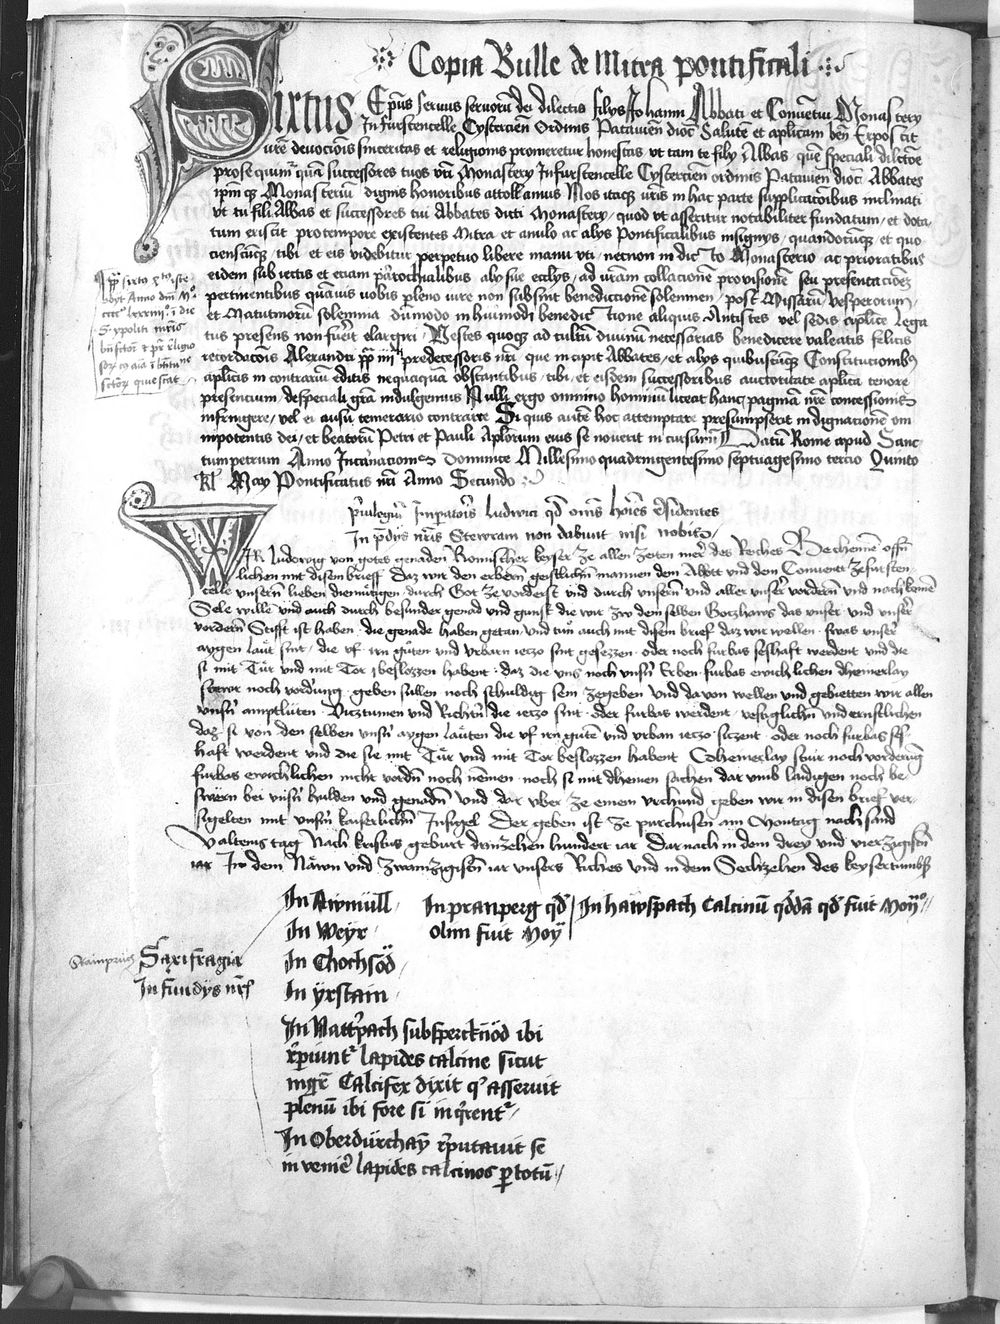 Copia Bulle de Mitra pontificali
Sixtus Ep̄us seruus seruorū dei dilectis filijs Johanni Abbati et Conuētui Monastery
In furstencelle Cystercień Ordinis Patauień dioč Salutē et aplicam beń Exposcit
ure deuocōis sinceritas et religionis promeretur honestas vt tam te fily Abbas quē speciali dilctōe
prosequim̄ quā successores tuos vr̄i Monastery In furstencelle Cystercień ordinis Patauień dioč Abbates
ip̄m qȝ Monasteriū dignis honoribus attollamus Nos itaqȝ vr̄is in hac parte supplicacōibus inclinati
vt tu fili Abbas et successores tui Abbates dicti Monastery quod vt asseritur notabiliter fundatum et dota
tum existit pro tempore existentes Mitra et anulo ac alys Pontificalibus insignys quandocūqȝ et quo
ciensciūqȝ tibi et eis videbitur perpetuo libere mani vti necnon in dicto Monasterio ac prioratibus
eidem subiectis et etiam parrochialibus alys siue ecclys ad vrām collacionē prouisionē seu presentacōeȝ
pertinentibus quāuis vobis pleno iure non subsint benedictionē solemnem post Missarū vesperorum
et Matutinorū solemnia dūmodo in huiuōi benedictione aliquis Antistes vel sedis aplice Lega
tus presens non fuerit elargiri Vestes quoqȝ ad cultū diuinū necessarias benedicere valeatis felicis
recordacōis Alexandri pp̄ iiij predecessoris nr̄i que incipit Abbates et alys quibuscūqȝ Constitutionibȝ
aplicis in contrariū editis nequaquā obstantibus tibi et eisdem successoribus auctoritate aplica tenore
presentium de speciali grā indulgemus Nulli ergo omnino hominū liceat hanc paginā nr̄e concessionis
infringere vel ei ausu temerario contraire Si quis autē hoc attemptare presumpserit indignacionē om
nipotentis dei et beatorū Petri et Pauli Aplorum eius se nouerit incursurū Datū Rome apud Sanc
tum petrum Anno Incarnacionis dominice Millesimo quadringentesimo septuagesimo tercio Quinto
kl May Pontificatus nr̄i Anno Secundo
App̄ sixto
Anno dnī Mo
cccco lxxxiiijo i die
S ypoliti mr̄is
quiescat
Priuilegiū Imꝑatoris Ludwici qd om̄s hoīes residentes
In p̄diis nr̄is Stewram non dabunt nisi nobis
WIR Ludowig von gotes genaden Romischer keyser ze allen zeiten merer des Reiches Bechennē offn̄
lichen mit disen brieff daz wir den erbern̄ geistlichn̄ mannen dem Abbt und dem Conuent ze fursten
celle vnsern̄ lieben diemütigen durch Got ze vorderst vnd durch vnsern̄ vnd aller vnsr̄ vordern̄ vnd nachkomen̄
Sele wille vnd auch durch besunder genad vnd gunst die wir zw dem selben Gotzhaws das vnser vnd vnsr̄
vordern̄ Stifft ist haben die genade haben getan vnd tun auch mit disem brief daz wir wellen swas vnsr̄
aygen laut sint die vf irn guten vnd vrbarn ietzo sint gesezzen oder noch furbas seshaft werdent vnd die
si mit Tür vnd mit Tor beslozzen habent daz die vns noch vnsn̄ Erben furbas ewichlichen dhemerlay
stewr noch vordrung geben sullen noch schuldig sein zegeben vnd da von wellen vnd gebietten wir allen
vnsn̄ amptlüten Vicztumen vnd Richtn̄ die ietzo sint oder furbas werdent vestiglichn̄ vnd ernstlichen
daz si von den selben vnsn̄ aygen läuten die vf irn gutē vnd vrban ietzo siczent oder noch furbas ses
haft werdent vnd die sie mit Tür vnd mit Tor beslozzen habent Dehemerlay stiur noch vorderūg
furbas ewichlichen nicht vordn̄ noch nemen noch si mit dhemen sachen dar vmb laidigen noch be
swärn bei vnsn̄ hulden vnd genadn̄ Vnd dar vber ze einem vrchund geben wir in disen brief ver
sigelten mit vnsn̄ kaiserlichn̄ Insigel Der geben ist ze purchusen am Montag nach sand
Valteins tag Nach kristus geburt drinzehen hundert iar Dar nach in dem drey vnd vierzigistn̄
iar In dem Näwn vnd zwainzigistn̄ iar vnsers Riches vnd in dem Sechzehen des keysertumbs
In Aymüll
In Weyr
In pranperg qd̄
olim fuit Moȳ
In hawspach Calcinū qddā qd̄ fuit Moȳ
Stainpruch
Saxifragia
In fundys nr̄is
In Chochsöd
In ÿrstain
In Mattpach sub sperckn̄öd ibi
rep̄iunt lapides calcine sicut
mgr̄ Calcifex dixit qȝ asseruit
plenū ibi fore si inqrent
In Oberdürchaȳ rep̄utauit se
inuenire lapides calcinos ꝑ totū